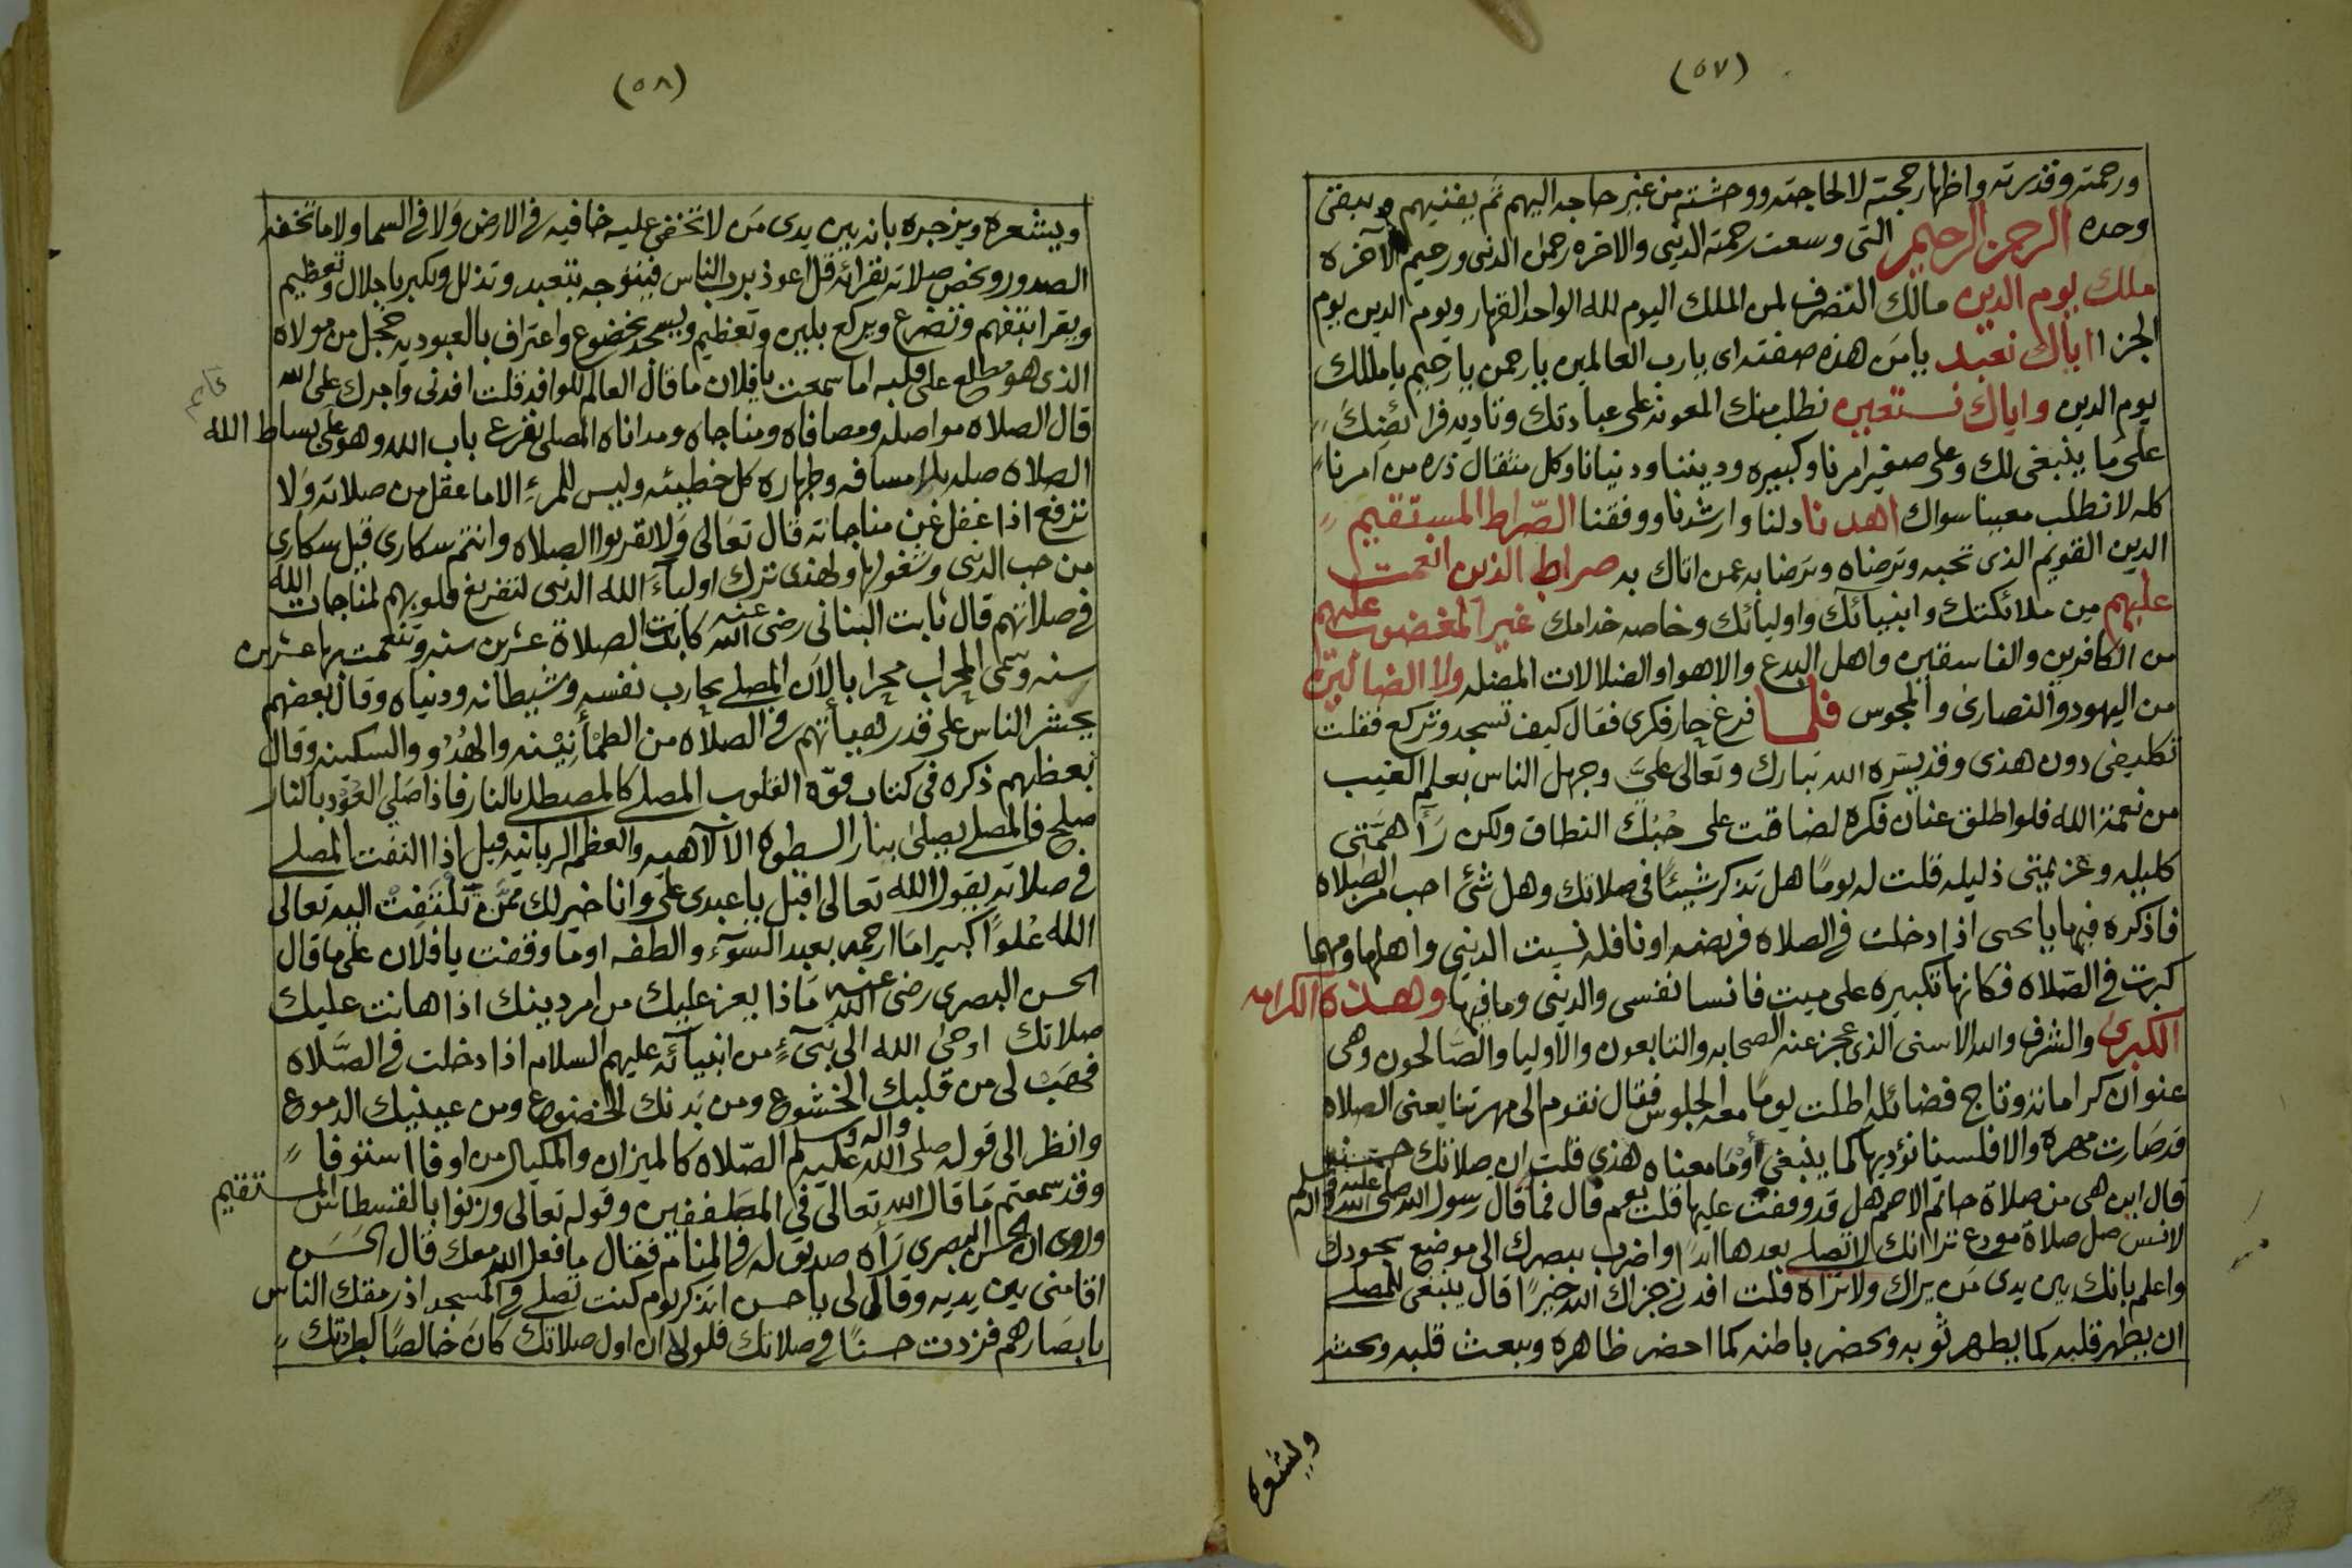 (٥٧)
ورحمته وقدرته واظهار حجته لا لحاجته ووحشته من غير حاجه اليهم ثم يفنيهم ويبقى
وحده الرحمن الرحيم التى وسعت رحمته الدنيى والاخره رحمن الدنى ورحيم الآخره
ملك يوم الدين مالك التصرف لمن الملك اليوم لله الواحد القهار ويوم الدين يوم
الجزا اياك نعبد يا من هذه صفته اى يا رب العالمين يا رحمن يا رحيم يا مالك
يوم الدين واياك نستعين نطلب منك المعونه على عبادتك وتاديه فرائضك
على ما ينبغى لك وعلى صغير امرنا وكبيره وديننا ودنيانا وكل مثقال ذره من امرنا
كله لا نطلب معينا سواك اهدنا دلنا وارشدنا ووفقنا الصّراط المستقيم
الدين القويم الذى تحبه وترضاه وترضا به عمن اتاك به صراط الذين انعمت
عليهم من ملائكتك وانبيائك واوليائك وخاصه خدامك غير المغضوب عليهم
من الكافرين والفاسقين واهل البدع والاهوا والضلالات المضله ولا الضالين
من اليهود والنصارى والمجوس فلما فرغ حار فكرى فقال كيف تسجد وتركع فقلت
تكليفى دون هذى وقد يسّره الله تبارك وتعالى علىّ وجهل الناس بعلم الغيب
من نعمة الله فلو اطلق عنان فكره لضاقت على حبك النطاق ولكن رأ همّتى
كليله وعزيمتى ذليله قلت له يومًا هل تذكر شيئًا فى صلاتك وهل شئ احب من الصلاه
فاذكره فيها يا يحيى اذا دخلت فى الصلاه فريضه او نافله نسيت الدنيى واهلها ومهما
كبرت فى الصّلاه فكانها تكبيره على ميت فانسا نفسى والدنيى وما فيها وهذه الكرامه
الكبرى والشرف والله الاسنى الذى عجز عنه الصحابه والتابعون والأوليا والصّالحون وهى
عنوان كراماته وتاج فضائله اطلت يومًا معه الجلوس فقال نقوم الى مهرتنا يعنى الصلاه
قد صارت مهره والا فلسنا نؤديها كما ينبغى أو ما معناه هذى قلت ان صلاتك حسنه
قال اين هى من صلاة حاتم الاصم هل قد وقفت عليها قلت نعم قال فما قال رسول الله صلى الله عليه واله وسلم
لانس صل صلاة مودع ترا انك لا تصلى بعدها ابدًا واضرب ببصرك الى موضع سجودك
واعلم بانك بين يدى من يراك ولا تراه قلت افدنى جزاك الله خيرًا قال ينبغى للمصلى
ان يطهر قلبه كما يطهر ثوبه ويحضر باطنه كما احضر ظاهره ويبعث قلبه ويحثه
ويشعره
(٥٨)
ويشعره ويزجره بانه بين يدى من لا تخفى عليه خافيه فى الارض ولا فى السما ولا ما تخفه
الصدور ويخص صلاته بقرائه قل اعوذ برب الناس فيتوجه بتعبد وتذلل ويكبر باجلال وتعظيم
ويقرا بتفهم وتضرع ويركع بلين وتعظيم ويسجد بخضوع واعتراف بالعبوديه خجل من مولاه
الذى هو مطلع على قلبه اما سمعت يا فلان ما قال العالم للوافد قلت افدنى واجرك على الله
قال الصلاه مواصله ومصافاه ومناجاه ومداناه المصلى يقرع باب الله وهو على بساط الله
الصلاه صله بلا مسافه وطهاره كل خطيئه وليس للمرء الا ما عقل من صلاته ولا
ترفع اذا غفل عن مناجاته قال تعالى ولا تقربوا الصلاه وانتم سكارى قيل سكارى
من حب الدنى وشغولها ولهذى ترك اولياء الله الدنيى لتفريغ قلوبهم لمناجات الله
فى صلاتهم قال ثابت البنانى رضى الله عنه كابدت الصلاة عشرين سنه وتنعمت بها عشرين
سنه وسمى المحراب محرابا لان المصلى يحارب نفسه وشيطانه ودنياه وقال بعضهم
يحشر الناس على قدر هيأتهم فى الصلاه من الطمأنِيْنه والهُدُو والسكينه وقال
بعظهم ذكره فى كتاب قوّة القلوب المصلى كالمصطلى بالنار فاذا صَلِىَ العوْد بالنار
صلح فالمصلى يصلى بنار السطوه الالآهيه والعظمه الربانيه قيل اذا التفت المصلى
فى صلاته يقول الله تعالى اقبل يا عبدى علي وانا خير لك ممّن تلتفت اليه تعالى
الله عُلوًا كبيرا ما ارحمه بعبد السّوء والطفه او ما وقفت يا فلان على ما قال
الحسن البصرى رضى الله عنه ماذا يعز عليك من امر دينك اذا هانت عليك
صلاتك اوحى الله الى نبىّ من انبيائه عليهم السلام اذا دخلت فى الصّلاه
فهَبْ لى من قلبك الخشوع ومن بدنك الخضوع ومن عينيك الدموع
وانظر الى قوله صلى الله عليه واله وسلم الصّلاه كالميزان والمكيال من اوفا استوفا
وقد سمعتم ما قال الله تعالى فى المطففين وقوله تعالى وزنوا بالقسطاس المستقيم
وروى ان الحسن البصرى رَأه صديق له فى المنام فقال ما فعل الله معك قال الحَسَن
اقامنى بين يديه وقال لى يا حسن اتذكر يوم كنت تصلى فى المسجد اذ رمقك الناس
بابصارهم فزدت حسنًا فى صلاتك فلولا ان اول صلاتك كانَ خالصًا لطردتك